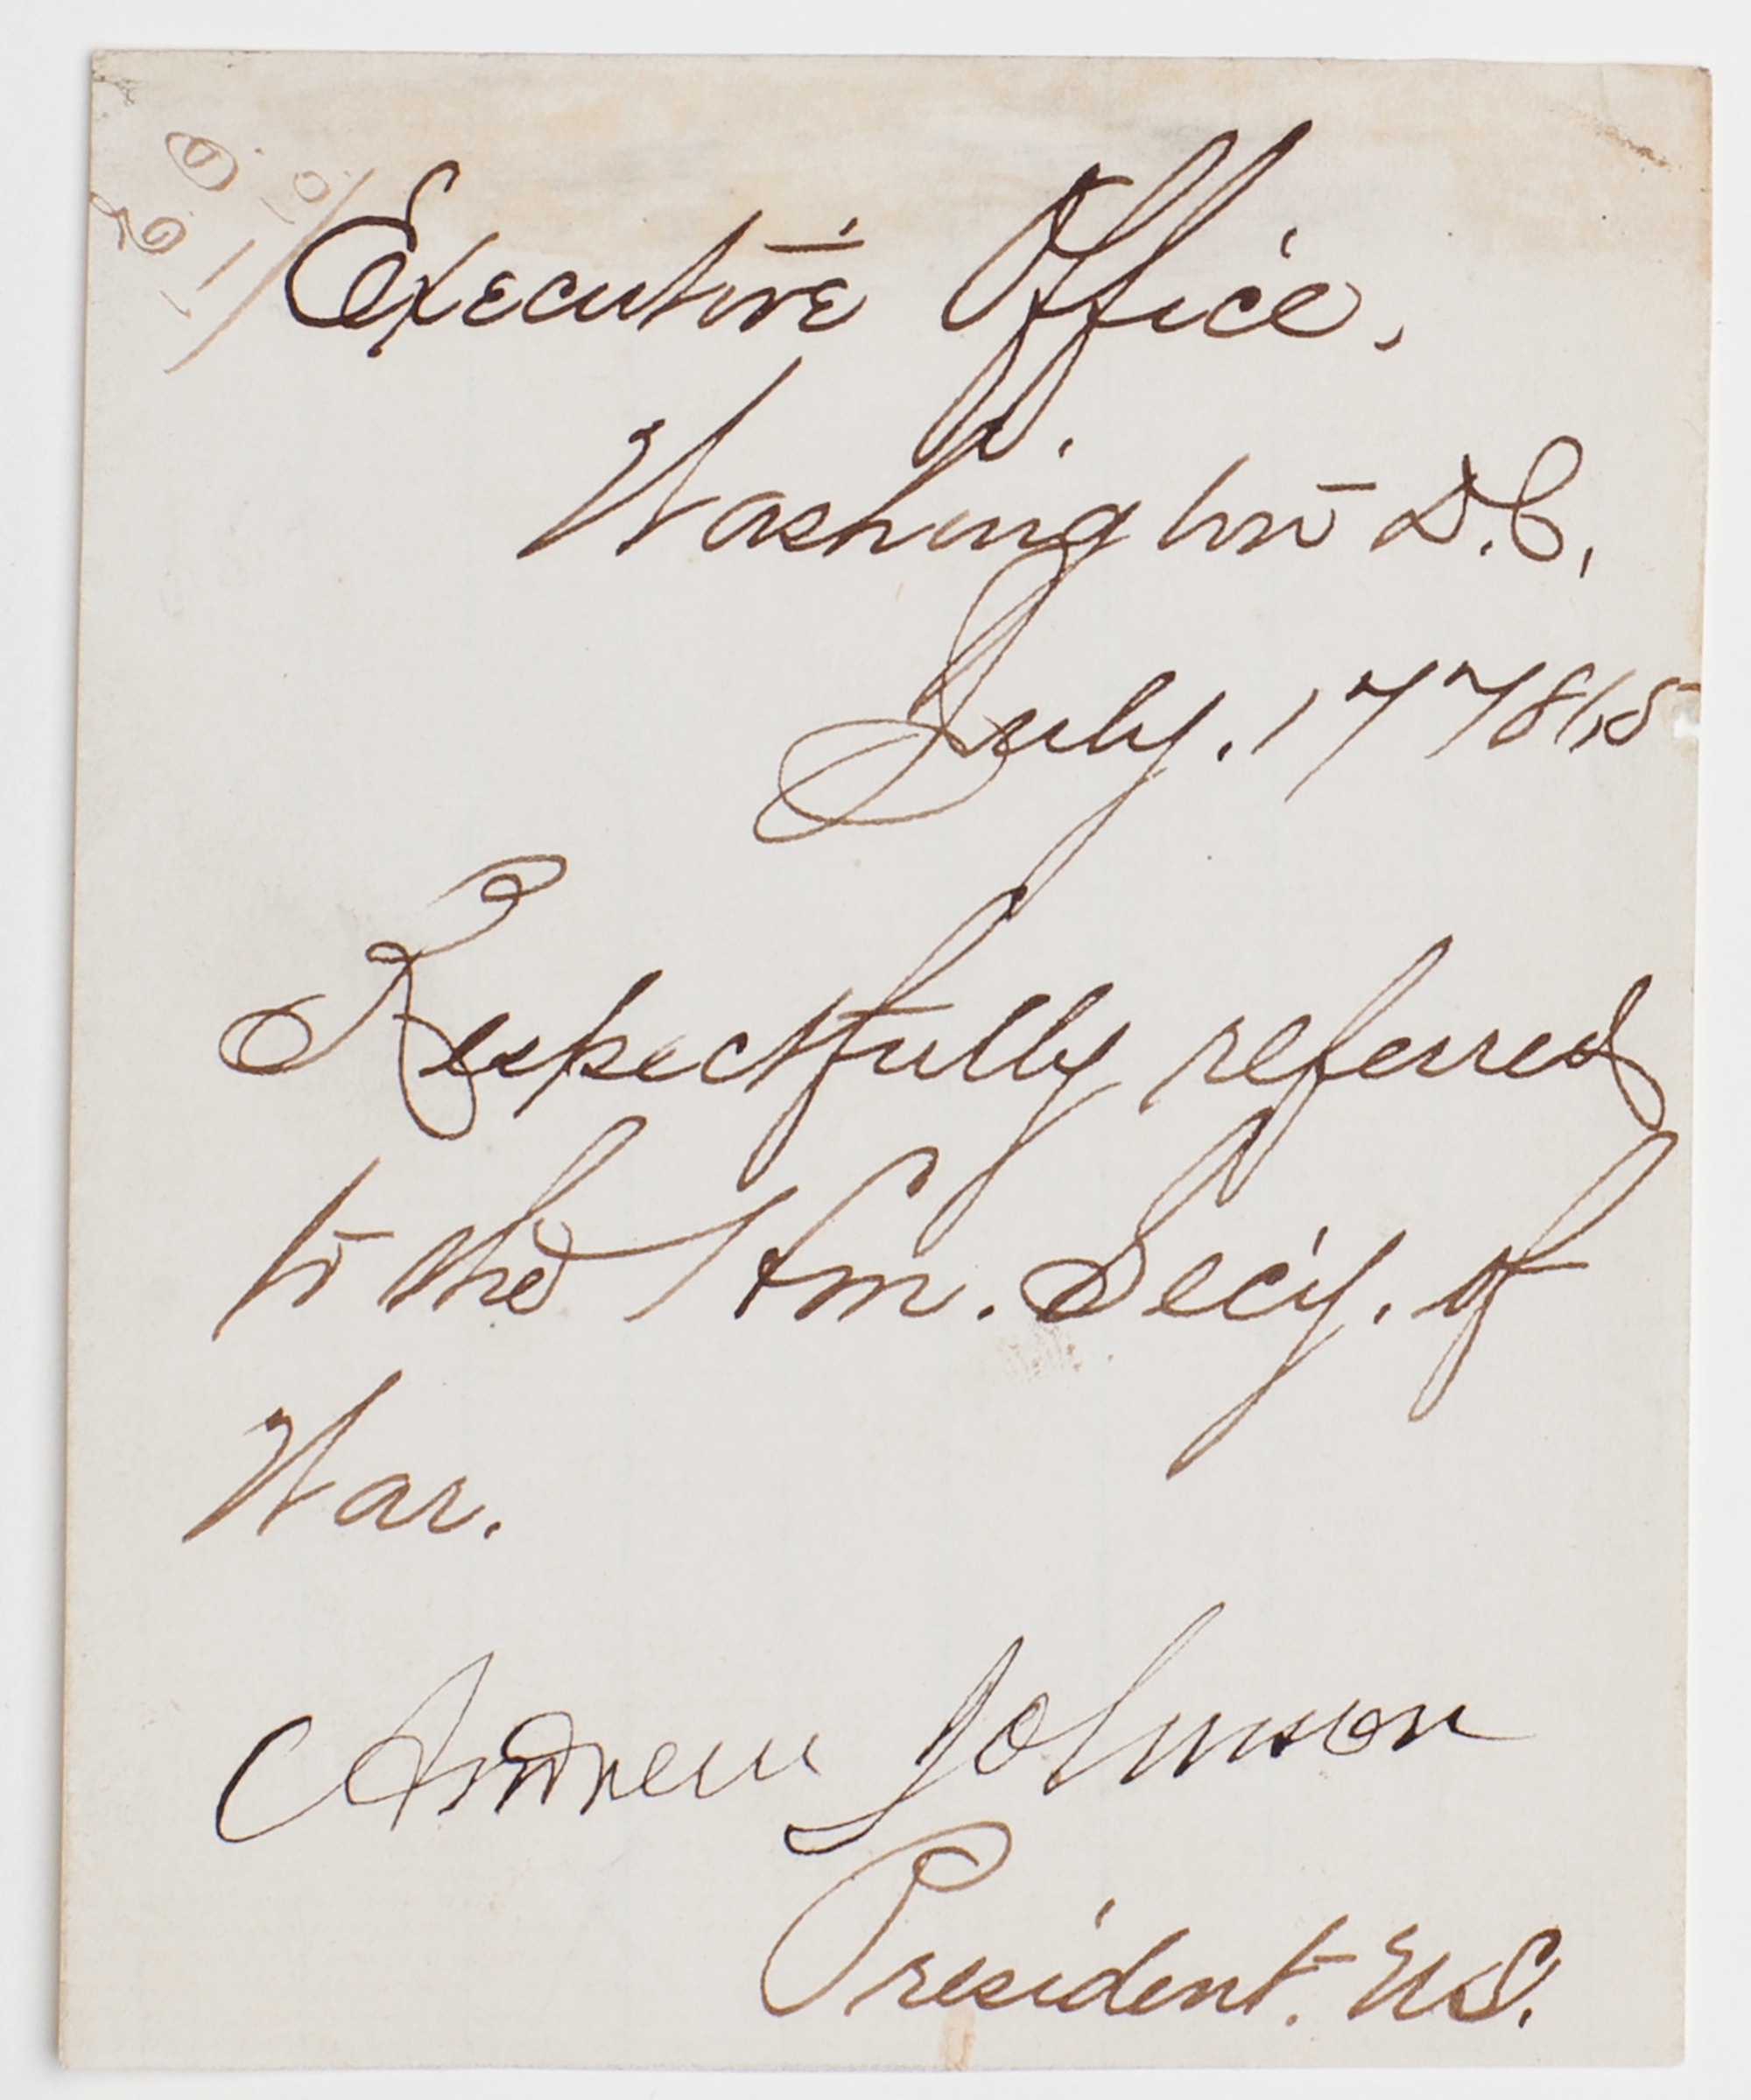 Executive Office.
Washington D.C.
July. 17 1865
Respectfully referred
to the Hon. Sec'y. of
War.
Andrew Johnson
President. U.S.